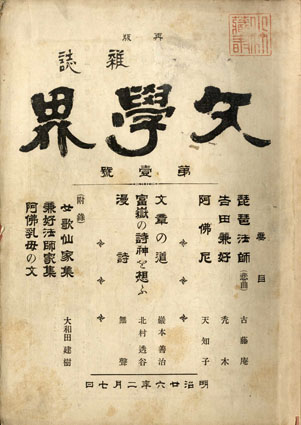 再版
雜誌
文學界
第壹號
要目
琵琶法師(悲曲) 古藤庵
吉田兼好 禿木
阿佛尼 天知子
文章の道 巖本善治
富嶽の詩神を想ふ 北村透谷
漫詩 無聲
(附錄)
女歌仙家集
兼好法師家集
阿佛乳母の文
大和田建樹
明治廿六年二月七日